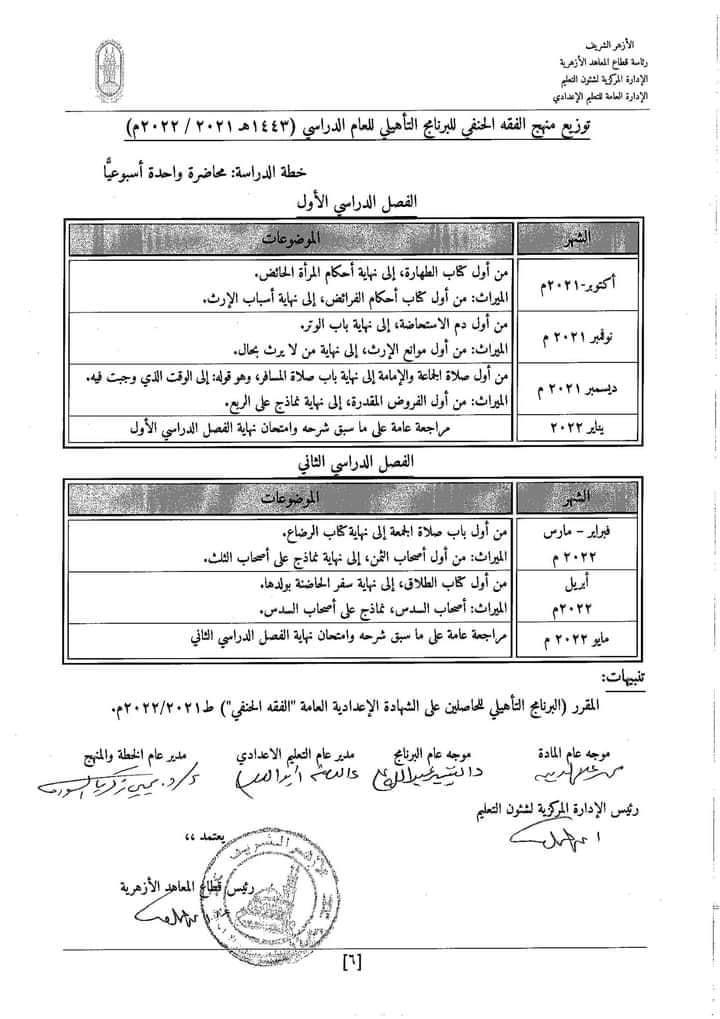 الأزهر الشريف
رئاسة قطاع المعاهد الأزهرية
الإدارة المركزية لشئون التعليم
الإدارة العامة للتعليم الإعدادي
توزيع منهج الفقه الحنفي للبرنامج التأهيلي للعام الدراسي (١٤٤٣هـ ٢٠٢١ / ٢٠٢٢م)
خطة الدراسة: محاضرة واحدة أسبوعيًّا
الفصل الدراسي الأول
الشهر الموضوعات
أكتوبر-٢٠٢١م
من أول كتاب الطهارة، إلى نهاية أحكام المرأة الحائض.
الميراث: من أول كتاب أحكام الفرائض، إلى نهاية أسباب الإرث.
نوفمبر ٢٠٢١ م
من أول دم الاستحاضة، إلى نهاية باب الوتر.
الميراث: من أول موانع الإرث، إلى نهاية من لا يرث بحال.
ديسمبر ٢٠٢١ م
من أول صلاة الجماعة والإمامة إلى نهاية باب صلاة المسافر، وهو قوله: إلى الوقت الذي وجبت فيه.
الميراث: من أول الفروض المقدرة، إلى نهاية نماذج على الربع.
يناير ٢٠٢٢ مراجعة عامة على ما سبق شرحه وامتحان نهاية الفصل الدراسي الأول
الفصل الدراسي الثاني
الشهر الموضوعات
فبراير – مارس من أول باب صلاة الجمعة إلى نهاية كتاب الرضاع.
٢٠٢٢ م الميراث: من أول أصحاب الثمن، إلى نهاية نماذج على أصحاب الثلث.
أبريل من أول كتاب الطلاق، إلى نهاية سفر الحاضنة بولدها.
٢٠٢٢م الميراث: أصحاب السدس، نماذج على أصحاب السدس.
مايو ٢٠٢٢ م مراجعة عامة على ما سبق شرحه وامتحان نهاية الفصل الدراسي الثاني
تنبيهات:
المقرر (البرنامج التأهيلي للحاصلين على الشهادة الإعدادية العامة "الفقه الحنفي") ط٢٠٢٢/٢٠٢١م.
موجه عام المادة موجه عام البرنامج مدير عام التعليم الاعدادي مدير عام الخطة والمنهج
رئيس الإدارة المركزية لشئون التعليم
يعتمد ،،
رئيس قطاع المعاهد الأزهرية
الأزهر الشريف
[٦]